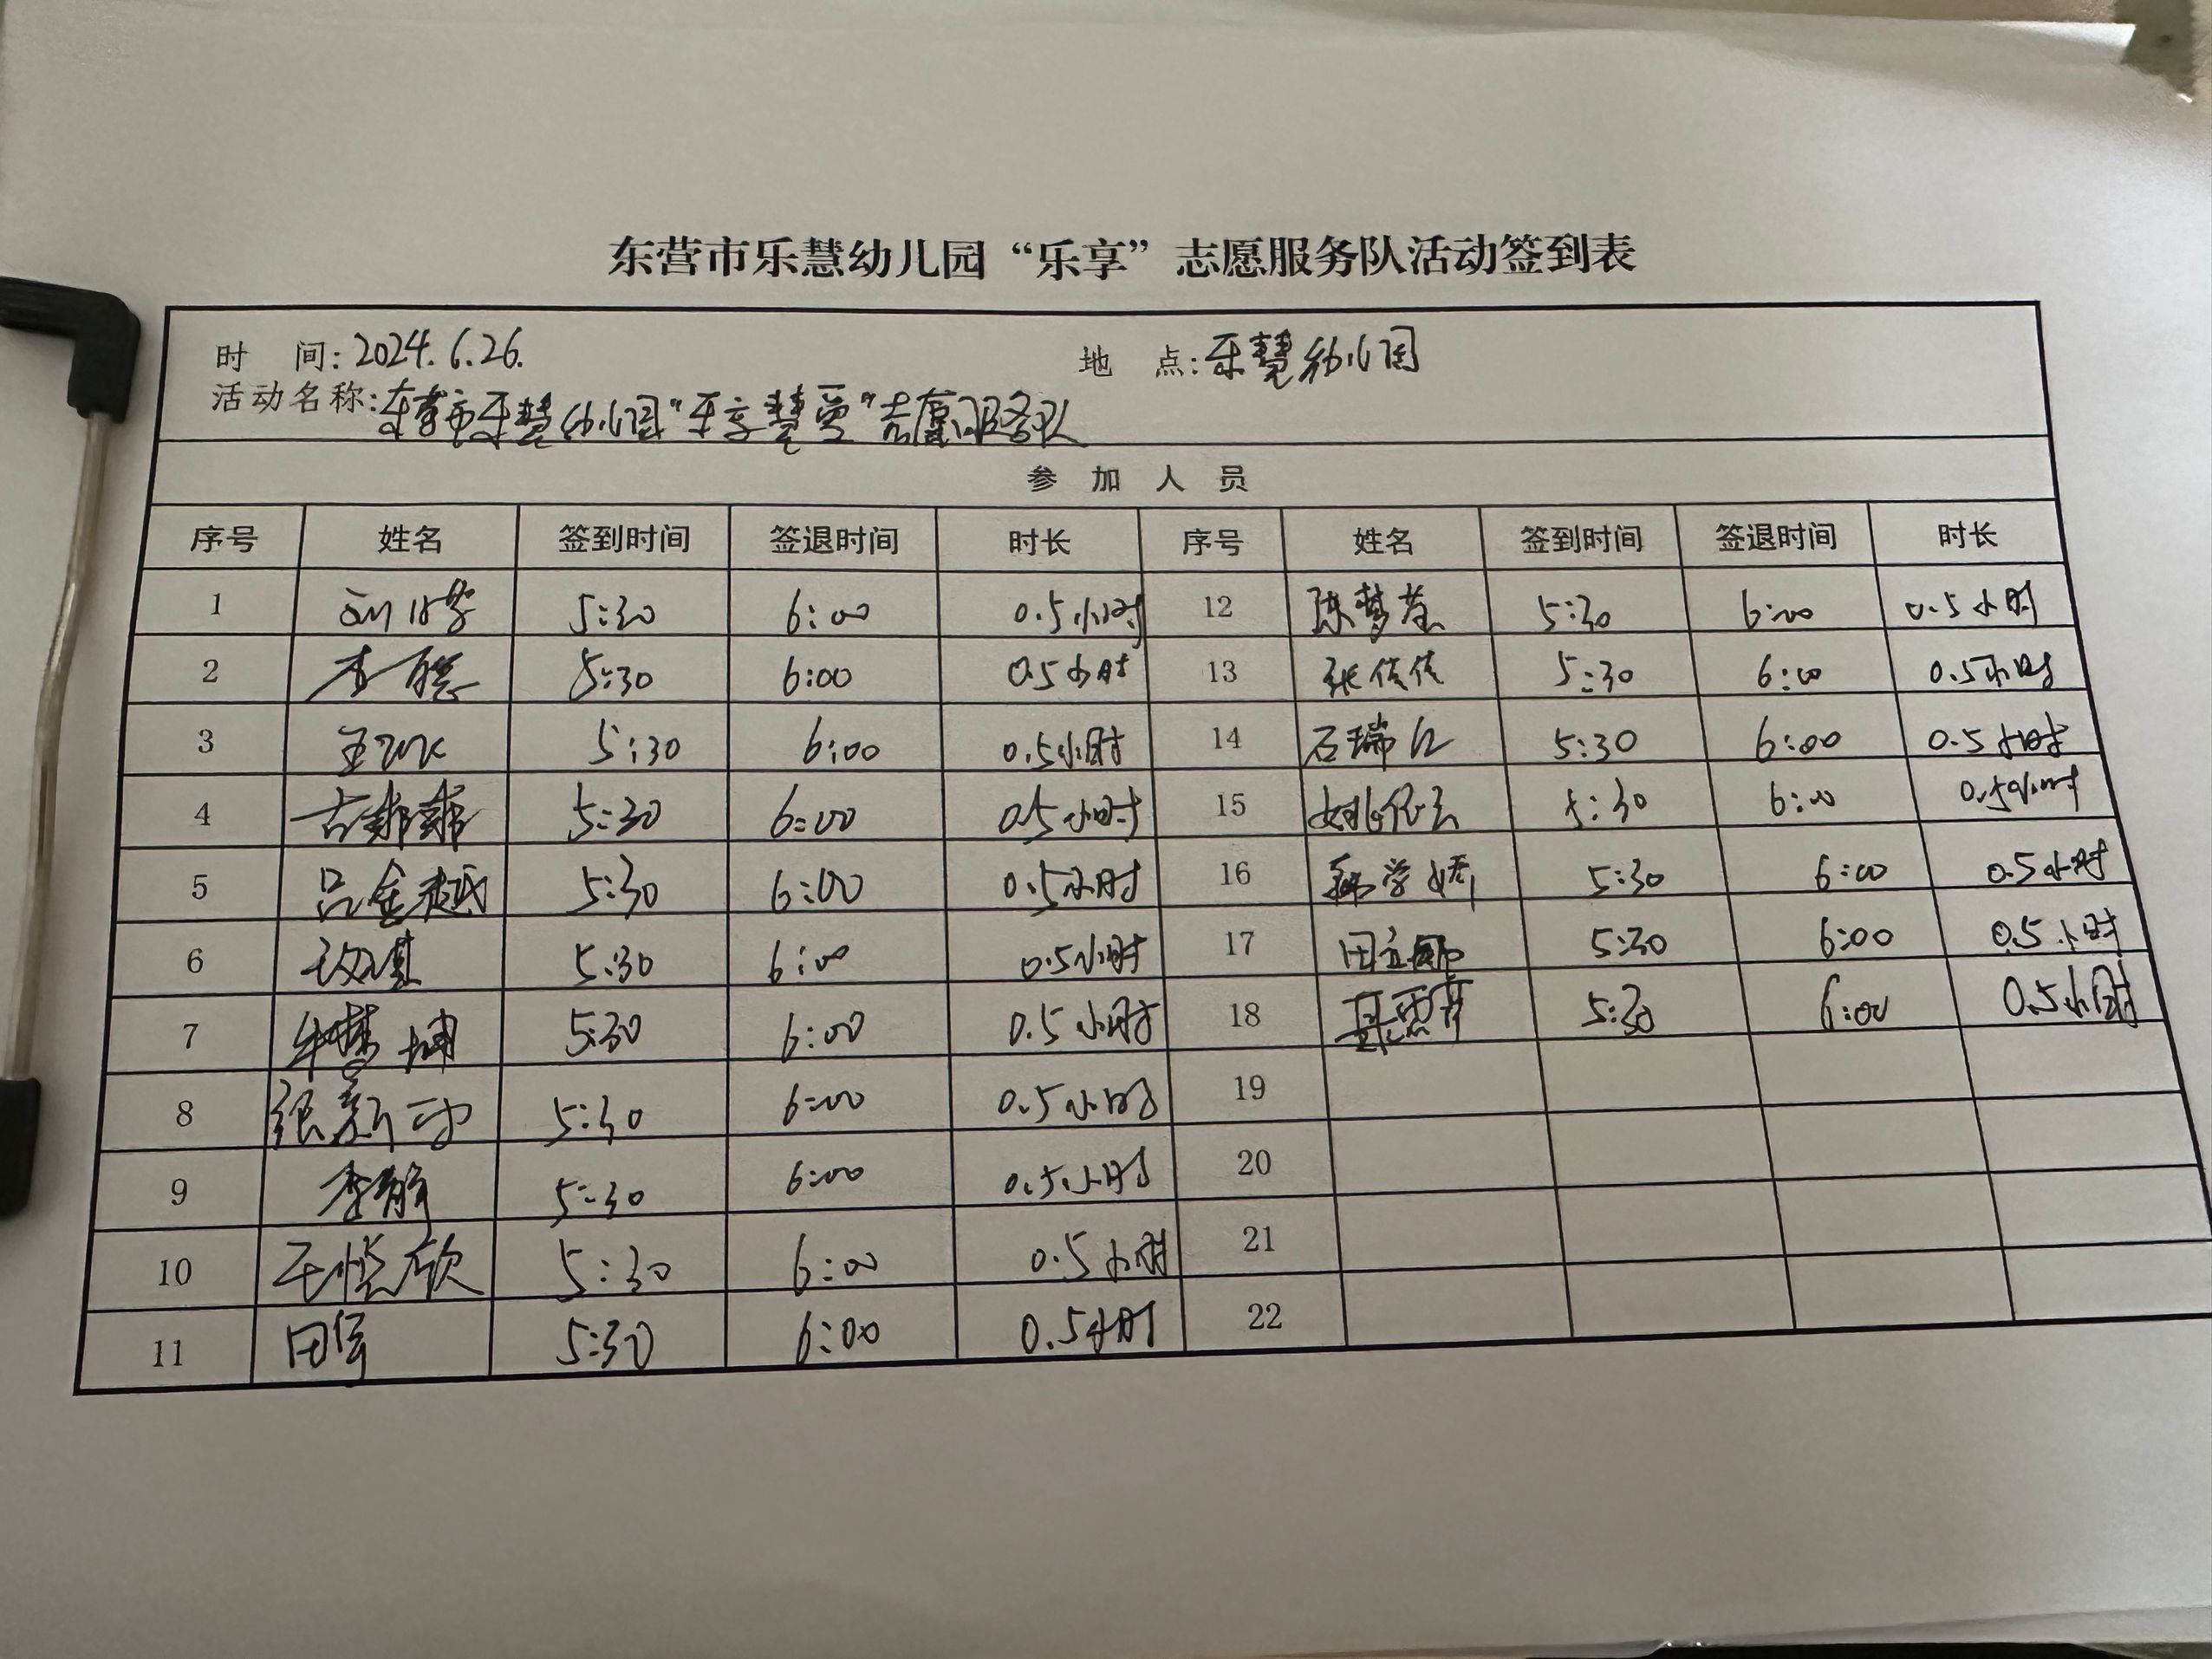 东营市乐慧幼儿园“乐享”志愿服务队活动签到表
时 间: 2024.6.26. 地 点: 乐慧幼儿园
活动名称: 东营市乐慧幼儿园“乐享慧爱”志愿服务队
参 加 人 员
序号 姓名 签到时间 签退时间 时长 序号 姓名 签到时间 签退时间 时长
1 5:30 6:00 0.5小时 12 陈梦莹 5:30 6:00 0.5小时
2 李聪 5:30 6:00 0.5小时 13 张佳佳 5:30 6:00 0.5小时
3 5:30 6:00 0.5小时 14 石瑞红 5:30 6:00 0.5小时
4 古娜娜 5:30 6:00 0.5小时 15 5:30 6:00 0.5小时
5 吕金越 5:30 6:00 0.5小时 16 韩学娇 5:30 6:00 0.5小时
6 5:30 6:00 0.5小时 17 田立娜 5:30 6:00 0.5小时
7 5:30 6:00 0.5小时 18 5:30 6:00 0.5小时
8 张新 5:30 6:00 0.5小时 19
9 李静 5:30 6:00 0.5小时 20
10 王悦欣 5:30 6:00 0.5小时 21
11 田 5:30 6:00 0.5小时 22